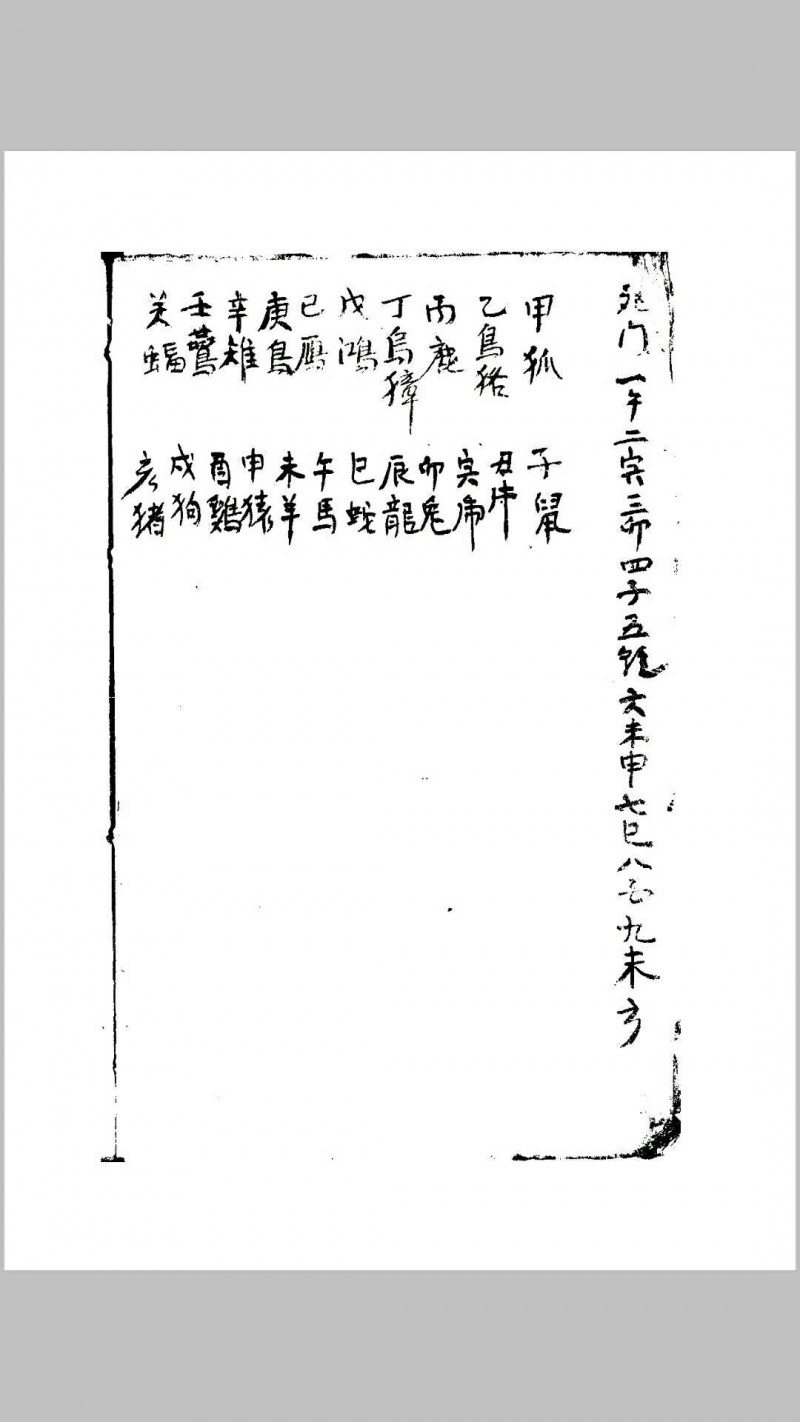 門 一午二寅三卯四子五 六未申七巳八 九未亥
甲狐
乙鳥狢
丙鹿
丁烏獐
戊鴻
己雁
庚鳥
辛雉
壬鶯
癸蝠
子鼠
丑牛
寅虎
卯兔
辰龍
巳蛇
午馬
未羊
申猿
酉鷄
戌狗
亥猪